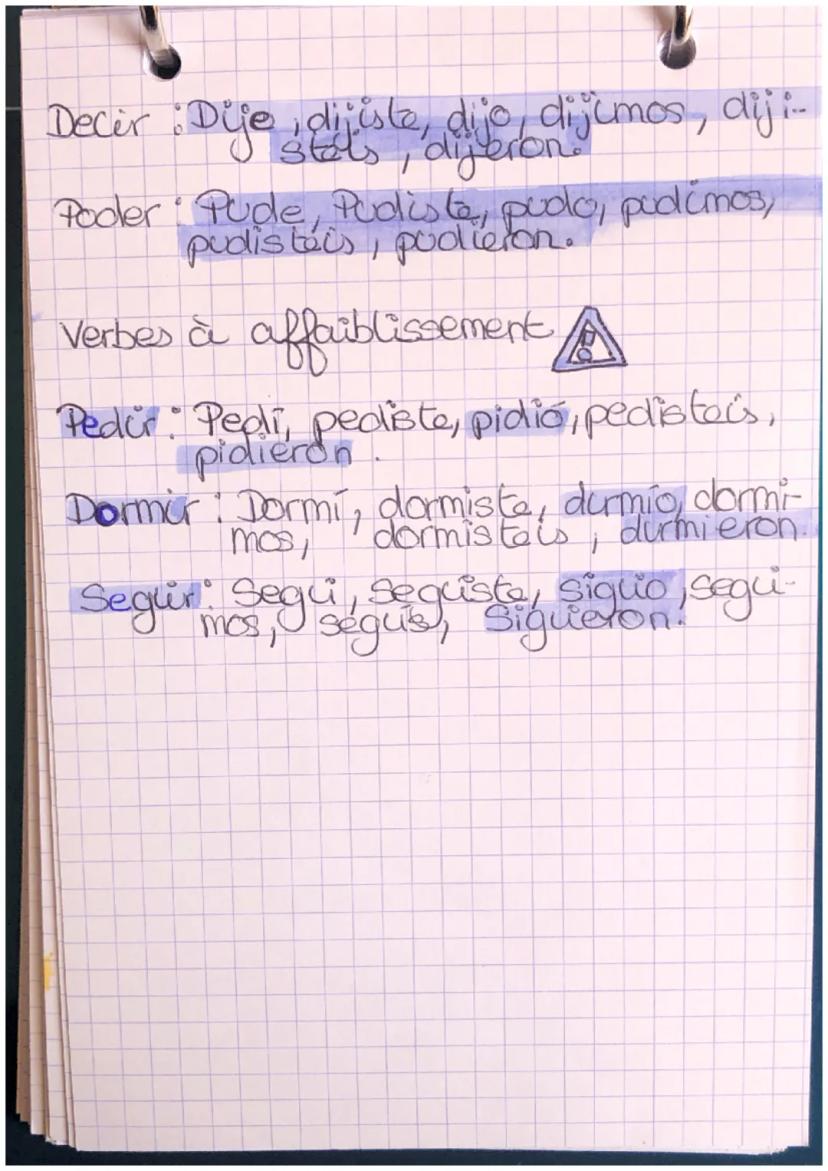 Decir : Dije, dijiste, dijo, dijimos, diji-
steis, dijeron.
Poder : Pude, Pudiste, pudo, pudimos,
pudisteis, pudieron.
Verbes à affaiblissement
Pedir : Pedí, pediste, pidió, pedisteis,
pidieron.
Dormir : Dormí, dormiste, durmío, dormi-
mos, dormisteis, durmieron.
Seguir : Segui, seguiste, siguio, segui-
mos, seguis, Siguieron.